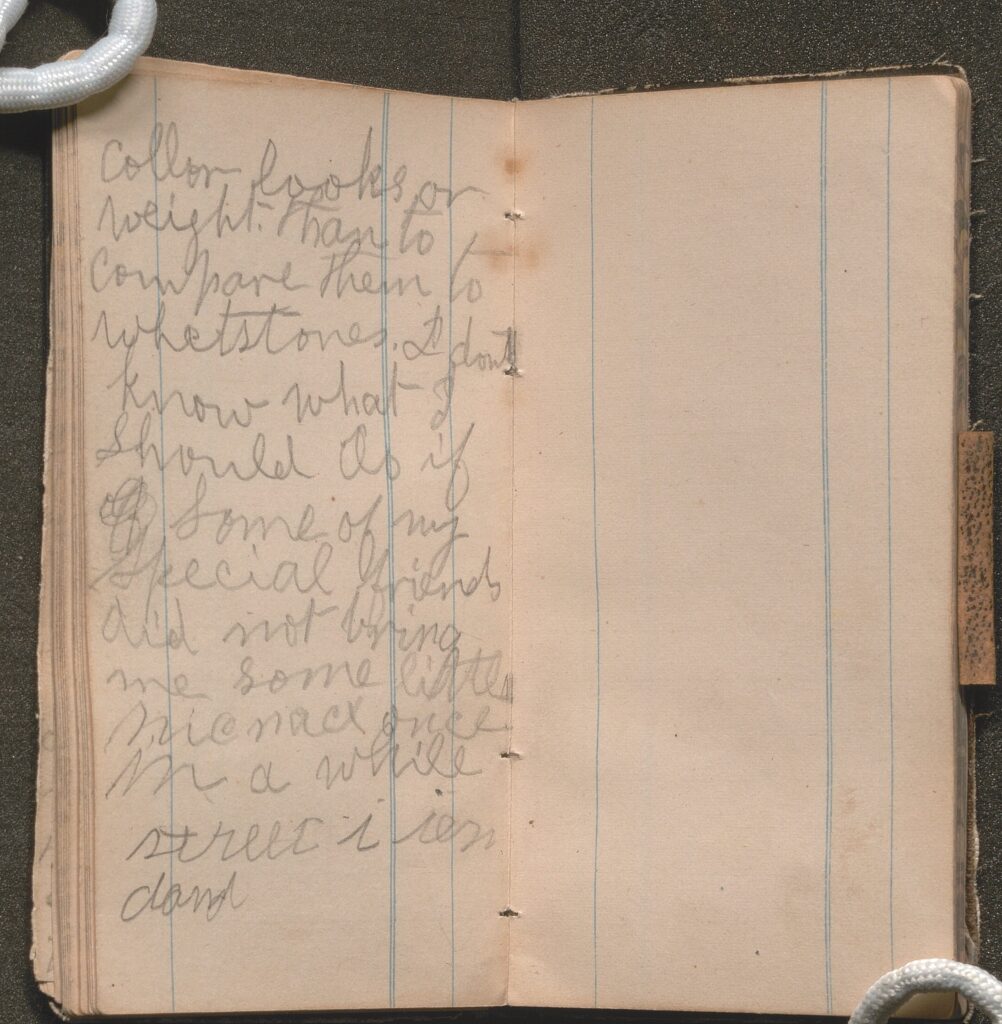 collor looks or
weight. than to
compare them to
whetstones. I dont
know what I
should do if
some of my
special friends
did not bring
me some little
nicnack once
in a while
street i